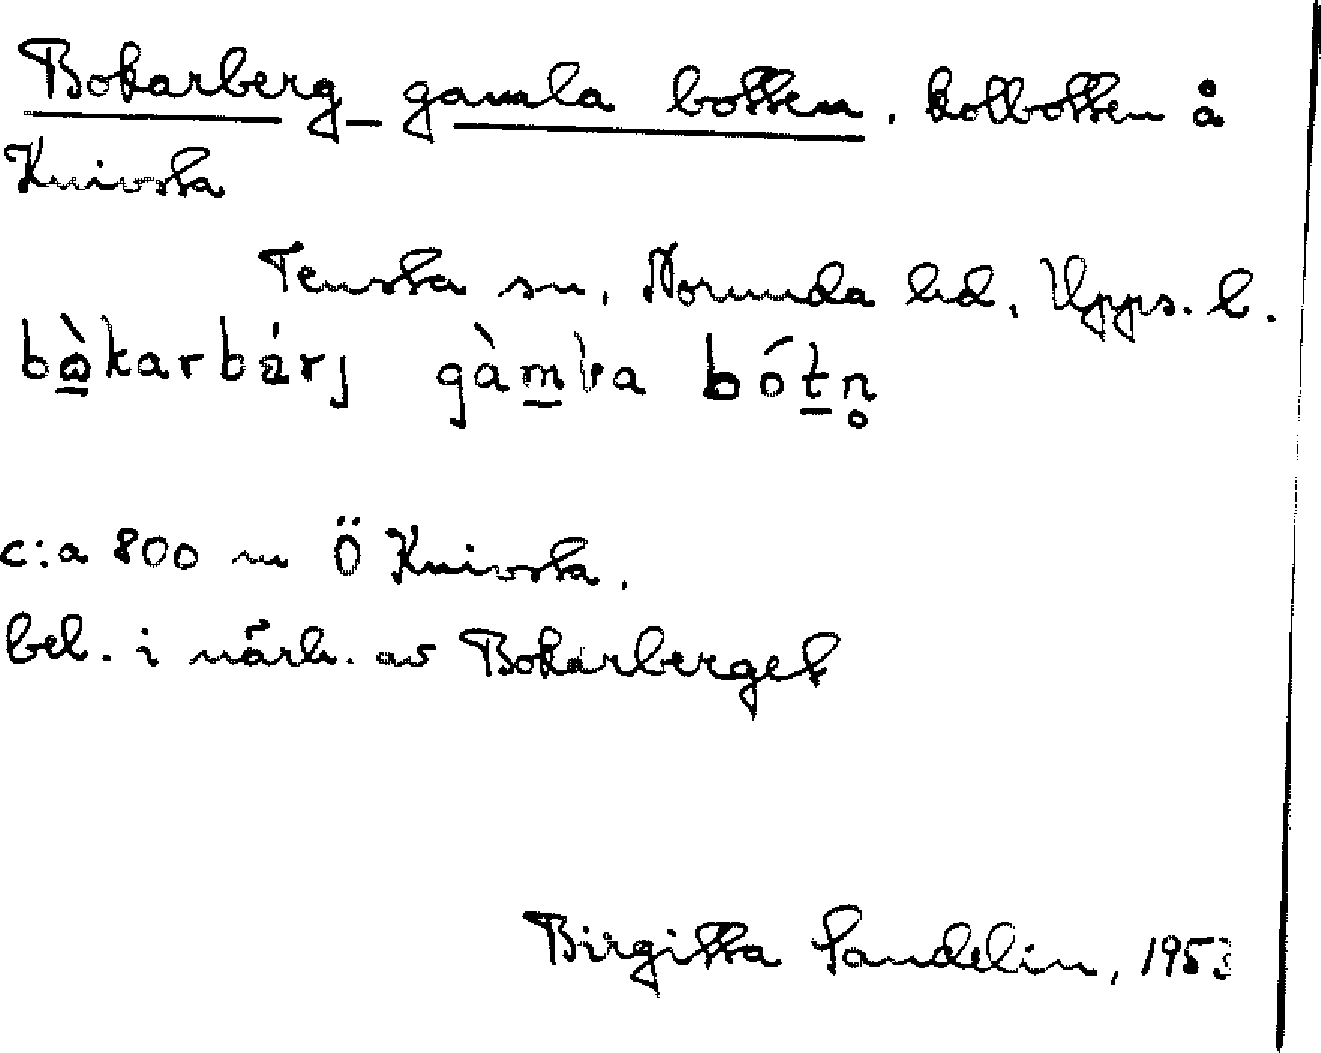 Bokarberg gamla botten, kolbotten å
Knivsta
Tensta sn, Norunda hd, Upps. l.
bὼkarbárj gàmla bótn̥
c:a 800 m Ö Knivsta.
bel. i närh. av Bokarberget
Birgitta Sandelin, 1953